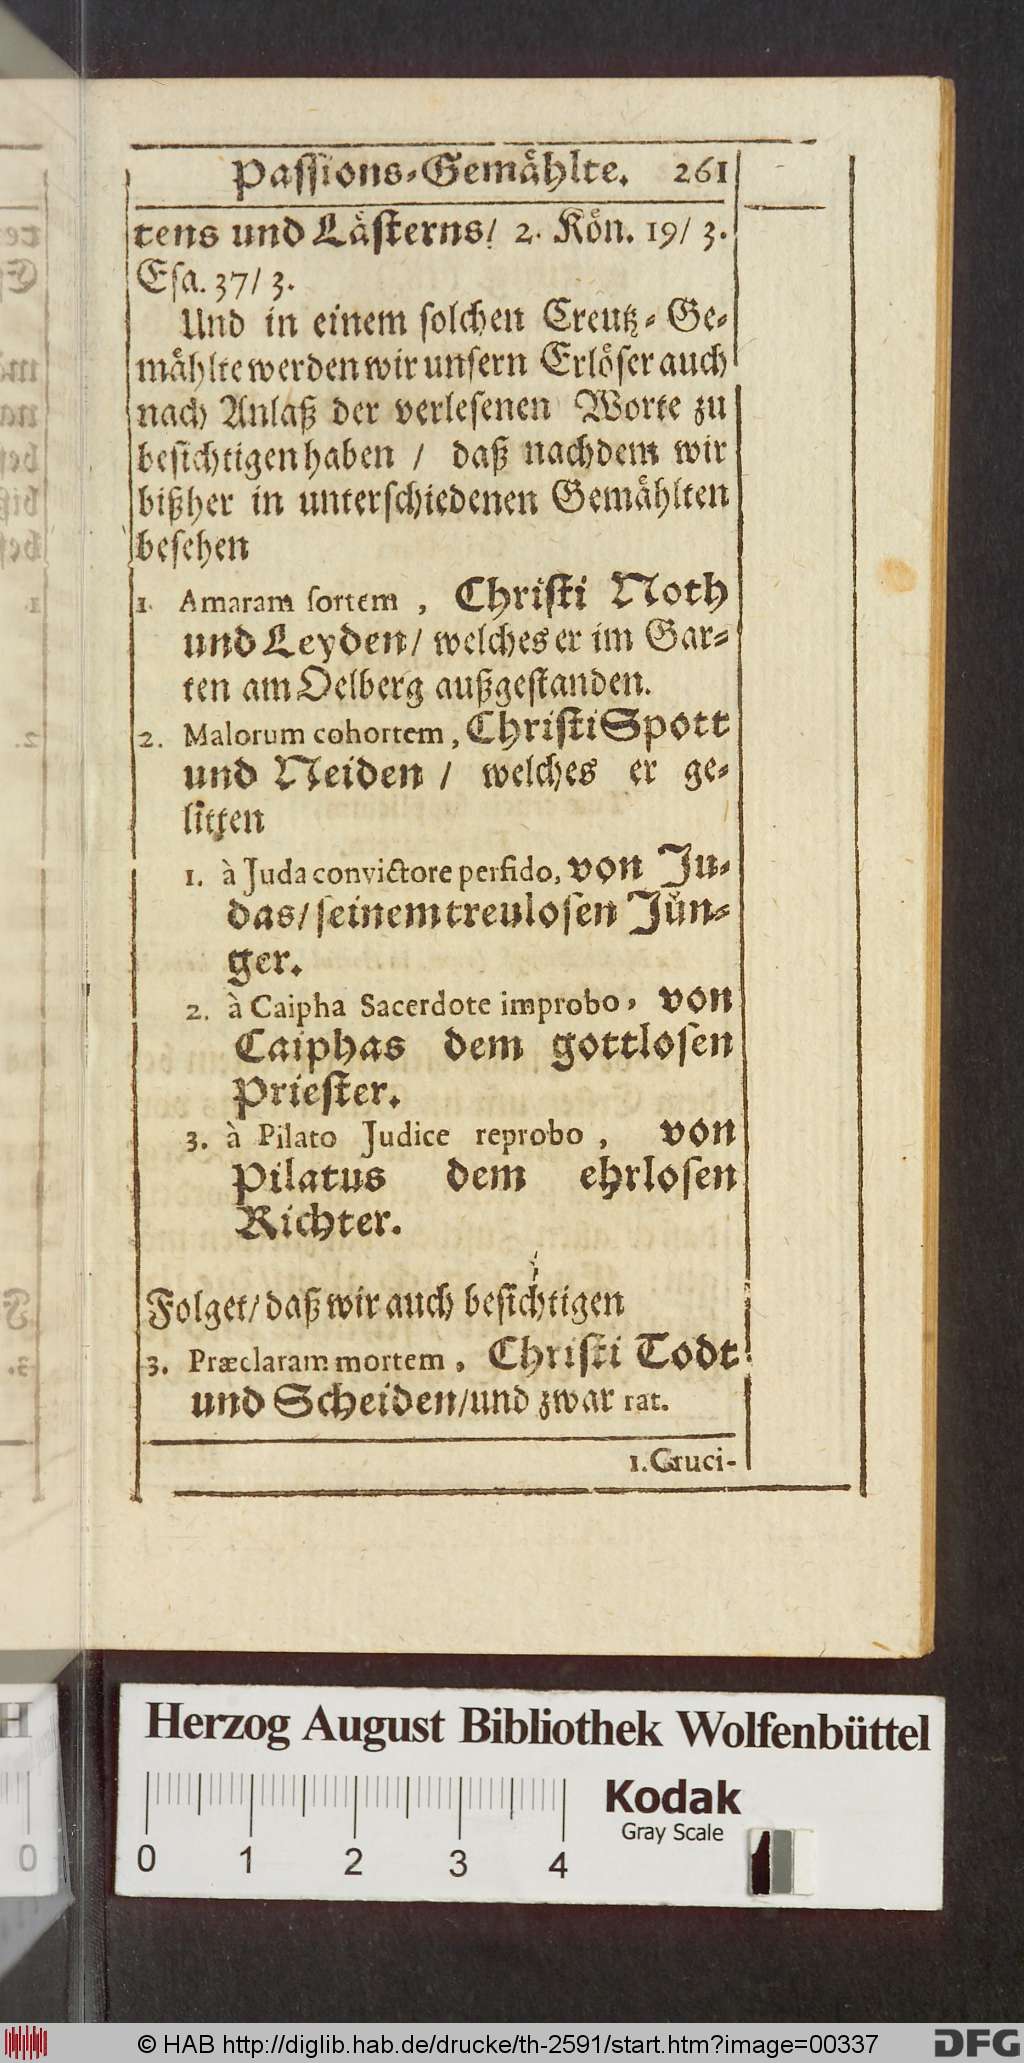 Passions-Gemählte. 261
tens und Lästerns/ 2. Kön. 19/ 3.
Esa. 37/ 3.
Und in einem solchen Creutz-Ge-
mählte werden wir unsern Erlöser auch
nach Anlaß der verlesenen Worte zu
besichtigen haben / daß nachdem wir
bißher in unterschiedenen Gemählten
besehen
1. Amaram sortem, Christi Noth
und Leyden/ welches er im Gar-
ten am Oelberg außgestanden.
2. Malorum cohortem, Christi Spott
und Neiden / welches er ge-
litten
1. à Juda convictore perfido, von Ju-
das/ seinem treulosen Jün-
ger.
2. à Caipha Sacerdote improbo, von
Caiphas dem gottlosen
Priester.
3. à Pilato Judice reprobo, von
Pilatus dem ehrlosen
Richter.
Folget/ daß wir auch besichtigen
3. Præclaram mortem, Christi Todt
und Scheiden/ und zwar rat.
1. Cruci-
Herzog August Bibliothek Wolfenbüttel
0 1 2 3 4
Kodak
Gray Scale
© HAB http://diglib.hab.de/drucke/th-2591/start.htm?image=00337
DFG